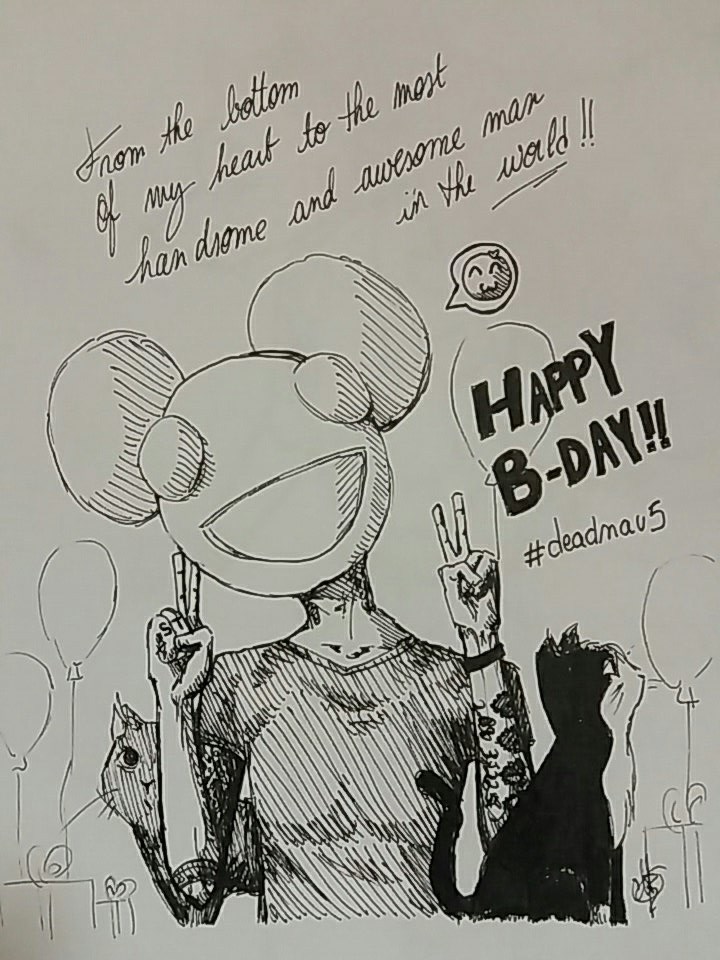 From the bottom
of my heart to the most
handsome and awesome man
in the world!!
HAPPY
B-DAY!!
#deadmau5